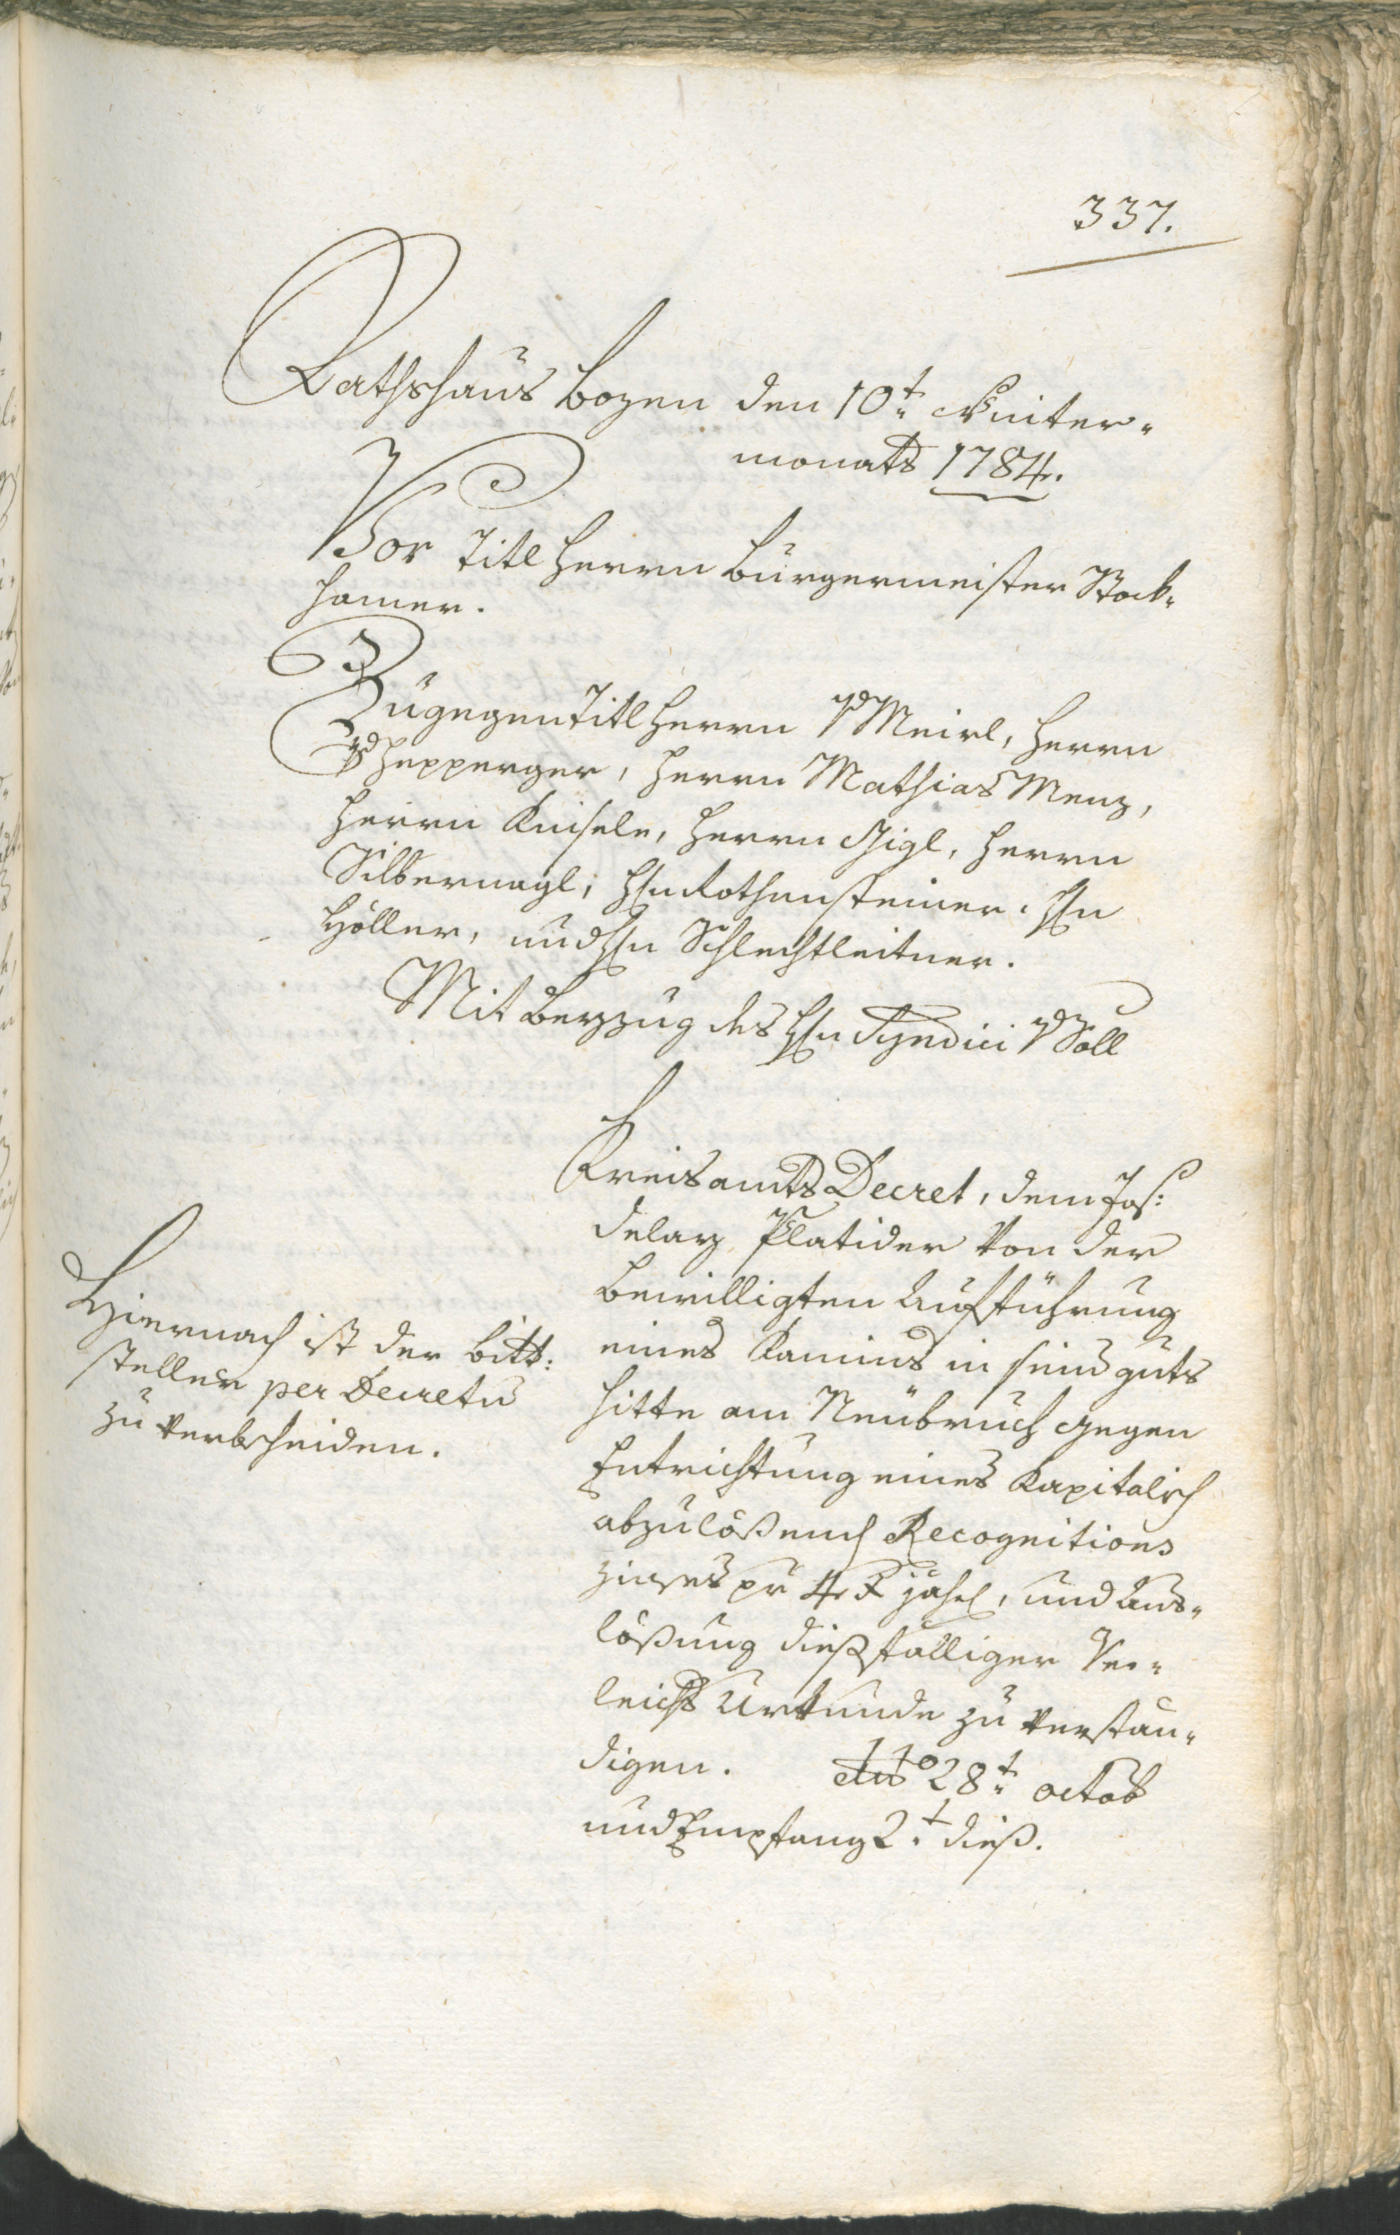 337.
Rathshaus Bozen den 10t: Winter-
monats 1784.
Vor Titl Herrn Bürgermeister Stock-
hamer.
Zugegen Titl Herrn v Meirl, Herrn
v Hepperger, Herrn Mathias Menz,
Herrn Kinsele, Herrn Gigl, Herrn
Silbernagl, Hn Rothensteiner, Hn
Höller, und Hn Schlechtleitner.
Mit Beyzug des Hn Syndici v Söll
Kreisamts Decret, dem Jos:
delaz Platider von der
bewilligten Aufführung
eines Kamins in seine Guts
hitte am Neübruch gegen
Entrichtung eines Kapitalisch
abzulößend Recognitions
Zinses pr 4 x jährl, und Aus-
lößung dießfälliger Ver-
leichs Urkunde zu verstän-
digen. dto 28t: octob
und Empfang 2t: dieß.
Hiernach ist der Bitt:
steller per Decretu
zu verbscheiden.